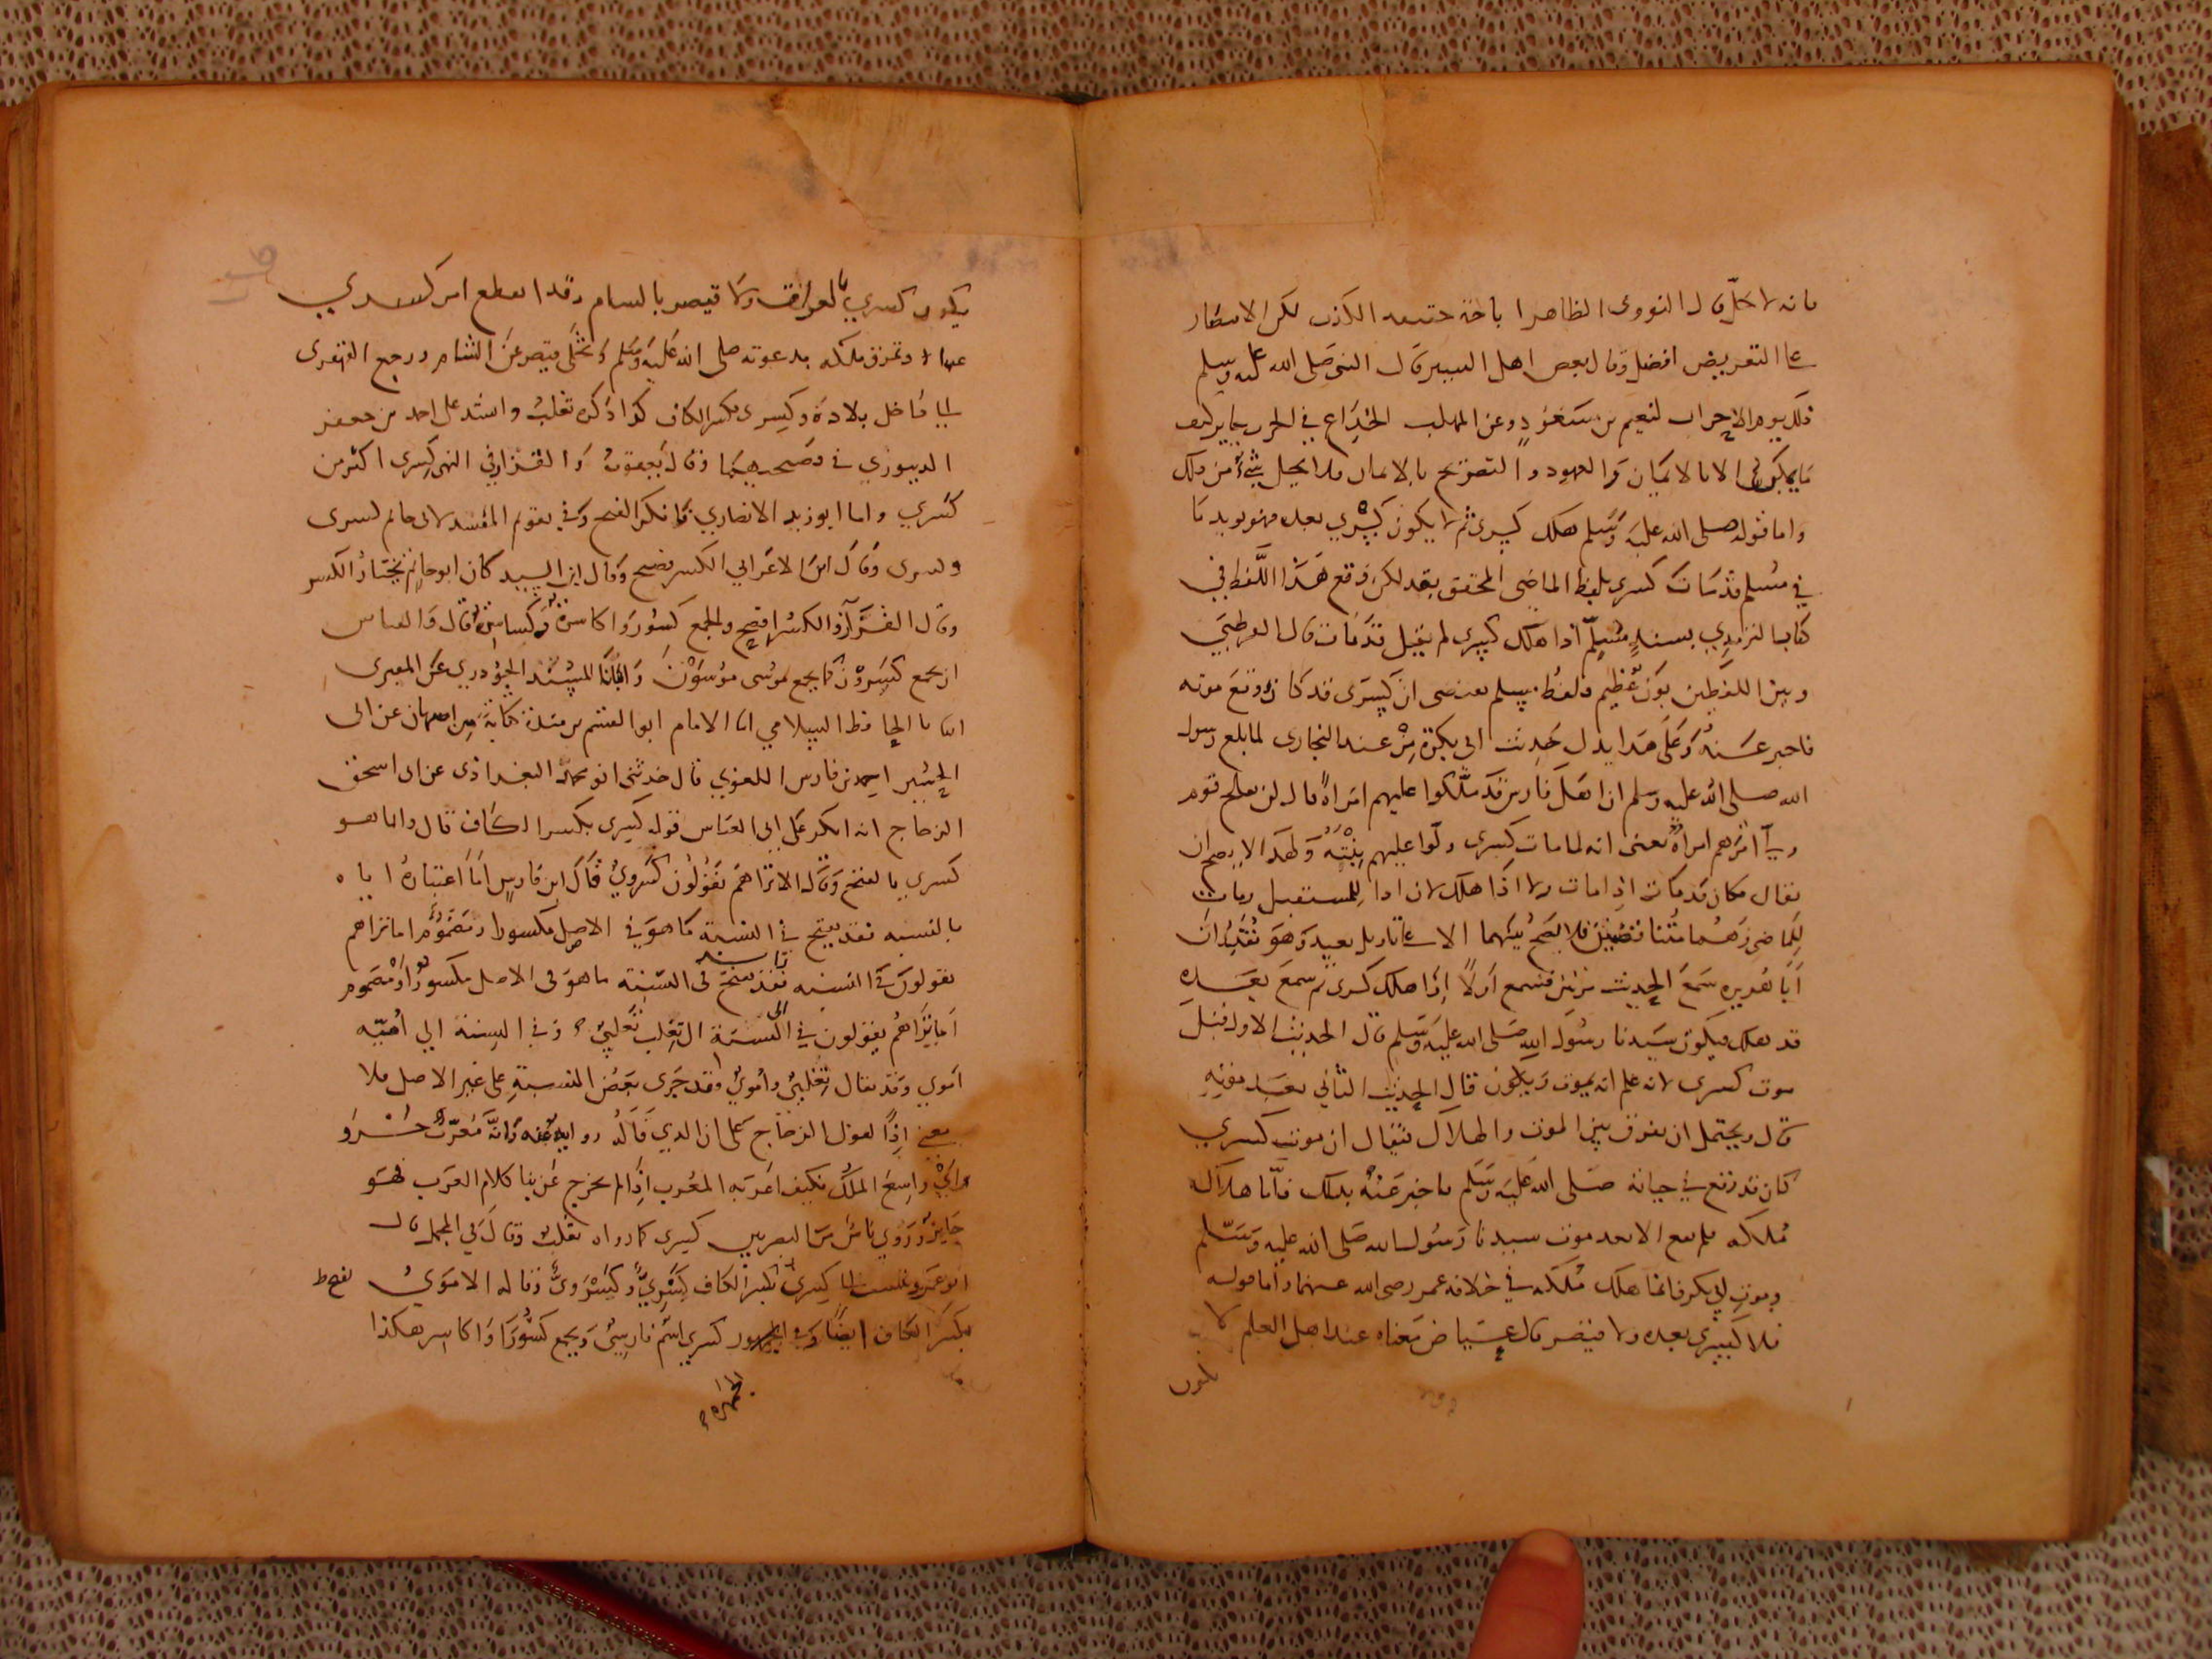 فانه لا يحل قال النووى الظاهر اباحة حقيقه الكذب لكن الاقتصار
على التعريض افضل وقال بعض اهل السير قال النبى صلى الله عليه وسلم
ذلك يوم الاحزاب لنعيم بن مسعود وعن المهلب الخداع في الحرب جايز كيف
ما يمكن الا بالايمان والعهود والتصريح بالامان فلا يحل شئ من ذلك
واما قوله صلى الله عليه وسلم هلك كسرى ثم لا يكون كسري بعده فهو يويد ما
في مسلم قد مات كسرى بلفظ الماضى المحقق بقد لكن وقع هذا اللفظ في
كتاب الترمذي بسند مسلم اذا هلك كسرى لم يقل قد مات قال القرطبي
وبين اللفظين بون عظيم فلفظ مسلم يقتضى ان كسرى قد كان وقع موته
فاخبر عنه وعلى هذا يدل حديث ابي بكرة عند البخارى لما بلغ رسول
الله صلى الله عليه وسلم ان اهل فارس قد ملكوا عليهم امراة قال لن يفلح قوم
امرهم امراة يعنى انه لما مات كسرى ولوا عليهم بنته ولهذا لا يصح ان
يقال مكان قد مات اذا مات ولا اذا هلك لان اذا للمستقبل ومات
للماضى وهما متناقضين فلا يصح بينهما الا على تاويل بعيد وهو تقدير ان
ابا هريره سمع الحديث مرتين فسمع اولا اذا هلك كسرى ثم سمع بعده
قد هلك فيكون سيدنا رسول الله صلى الله عليه وسلم قال الحديث الاول قبل
موت كسرى لانه علم انه يموت ويكون قال الحديث الثاني بعد موته
قال ويحتمل ان يفرق بين الموت والهلاك فيقال ان موت كسري
كان قد وقع في حياته صلى الله عليه وسلم فاخبر عنه بذلك فاما هلاك
ملكه فلم يقع الا بعد موت سيدنا رسول الله صلى الله عليه وسلم
وموت ابي بكر فانما هلك ملكه في خلافه عمر رضى الله عنهما واما قوله
فلا كسرى بعده ولا قيصر قال عياض معناه عند اهل العلم لا
يكون
يكون كسري بالعراق ولا قيصر بالشام وقد انقطع امر كسري
وتمزق ملكه بدعوته صلى الله عليه وسلم وتخلى قيصر عن الشام ورجع القهقرى
الى داخل بلاده وكسرى بكسر الكاف كذا ذكره ثعلب واستدل احمد بن جعفر
الدينوري في وقال يعقوب والقزاز في كسرى اكثر من
كسري واما ابو زيد الانصاري فانكر الفتح وفي تقويم المفسد لابى حاتم كسرى
وكسرى وقال ابن الاعرابي الكسر فصيح وقال ابن السيد كان ابو حاتم يختار الكسر
وقال القزاز والكسر افصح والجمع كسور واكاسرة وكساسرة قال والقياس
ان يجمع كسرون كما يجمع موسى موسون وانبانا المسند الجودري عن المقيرى
انبانا الحافظ السلامي انا الامام ابو القسم بن مندة كتابة من اصبهان عن ابى
الحسين احمد بن فارس اللغوي قال حدثنى ابو محمد البغداذى عن ابى اسحق
الزجاج انه انكر على ابى العباس قوله كسرى بكسر الكاف قال وانما هو
كسري بالفتح وقال الا تراهم يقولون كسروي قال ابن فارس اما اعتباره اياه
بالنسبه فقد يفتح في النسبة ما هو في الاصل مكسورا ومضموم اما تراهم
يقولون في النسبه فقد يفتح فى النسبة ما هو فى الاصل مكسور او مضموم
اما تراهم يقولون في النسبة الى التغلب تغلبي وفي النسبة الي امية
اموي وقد يقال تغلبي واموي فقد جرى بعض المنسبة على غير الاصل فلا
معنى اذا لقول الزجاج على ان الذي قاله رواية عنه وانه معرب خسرو
اي واسع الملك فكيف اعربه المعرب اذا لم يخرج عن بنا كلام العرب فهو
جايز وروي ناس من البصريين كسرى كما رواه ثعلب وقال في المجمل قال
ابو عمرو ينسب الى كسرى بكسر الكاف كسري وكسروى وقال الاموي بفتح ط
بكسر الكاف ايضا وفي كسري اسم فارسي ويجمع كسورا واكاسر هكذا
الجمهرة